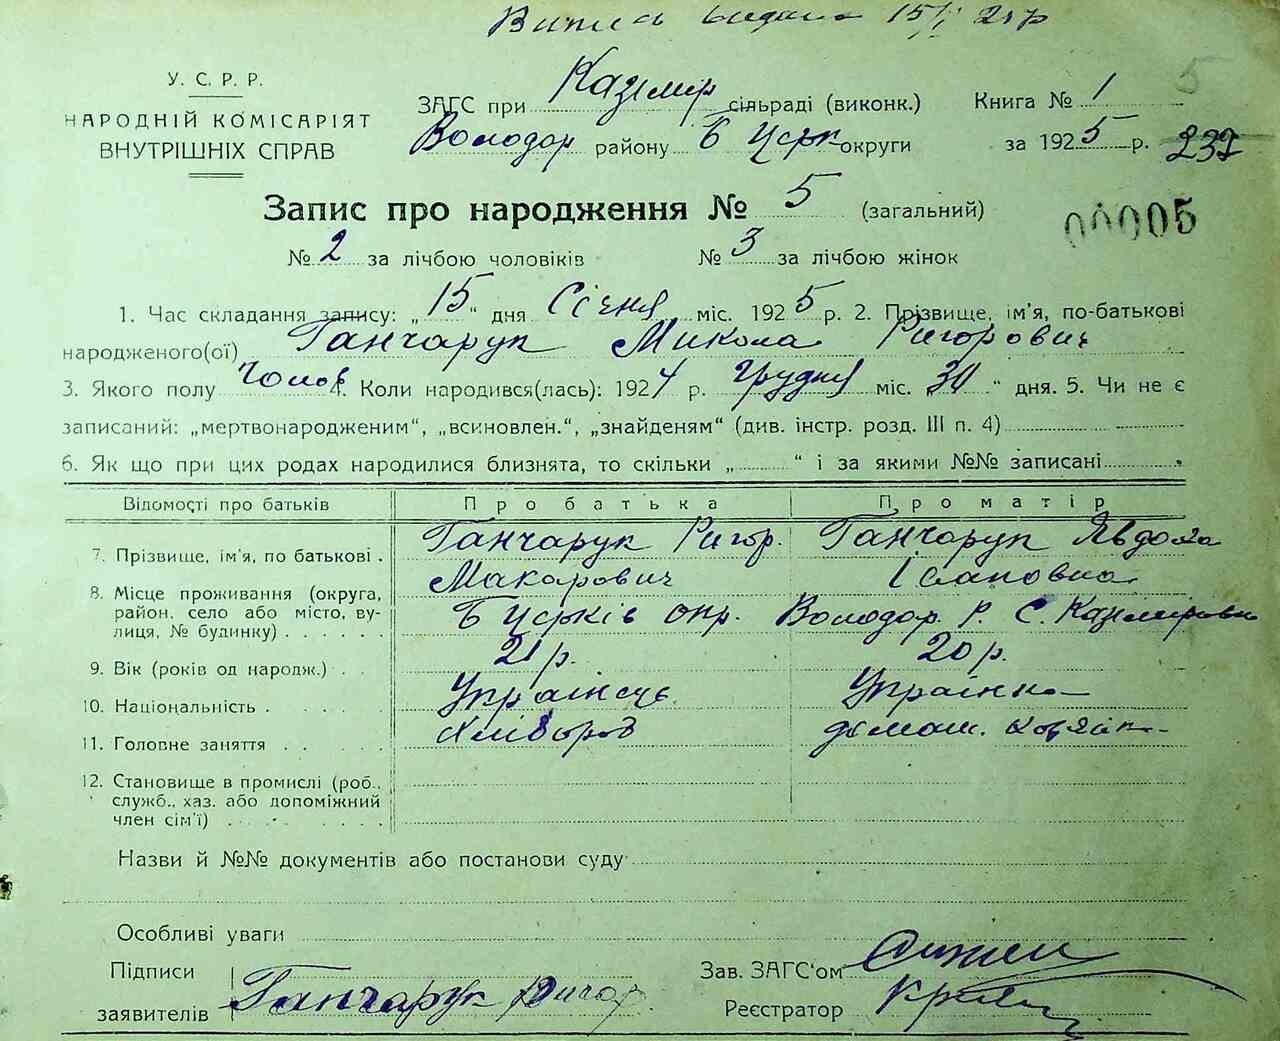 Витяг видано 15/I 25 р
У. С. Р. Р.
НАРОДНІЙ КОМІСАРІЯТ
ВНУТРІШНІХ СПРАВ
ЗАГС при Казімір сільраді (виконк.)
Володар району Б Церк округи
Книга № 1
за 1925 р.
5
237
Запис про народження № 5 (загальний)
00005
№ 2 за лічбою чоловіків № 3 за лічбою жінок
1. Час складання запису: „15“ дня Січня міс. 1925 р. 2. Прізвище, ім'я, по-батькові
народженого(ої) Ганчарук Микола Ригорович
3. Якого полу Чолов 4. Коли народився(лась): 1924 р. Грудня міс. „30“ дня. 5. Чи не є
записаний: „мертвонародженим“, „всиновлен.“, „знайденям“ (див. інстр. розд. III п. 4)
6. Як що при цих родах народилися близнята, то скільки „ “ і за якими №№ записані
Відомості про батьків Про батька Про матір
7. Прізвище, ім'я, по батькові . Ганчарук Ригор. Макарович Ганчарук Явдоха
8. Місце проживання (округа,
район, село або місто, вулиця, № будинку) Б Церків окр. Володар. Р. С. Казімірівка
9. Вік (років од народж.) . . 21 р. 20 р.
10. Національність . Українець Українка
11. Головне заняття . . Хлібороб домаш. хозяйк
12. Становище в промислі (роб.,
служб., хаз. або допоміжний
член сім'ї) . . . .
Назви й №№ документів або постанови суду
Особливі уваги
Підписи
заявителів Ганчарук Ригор
Зав. ЗАГС'ом
Реєстратор